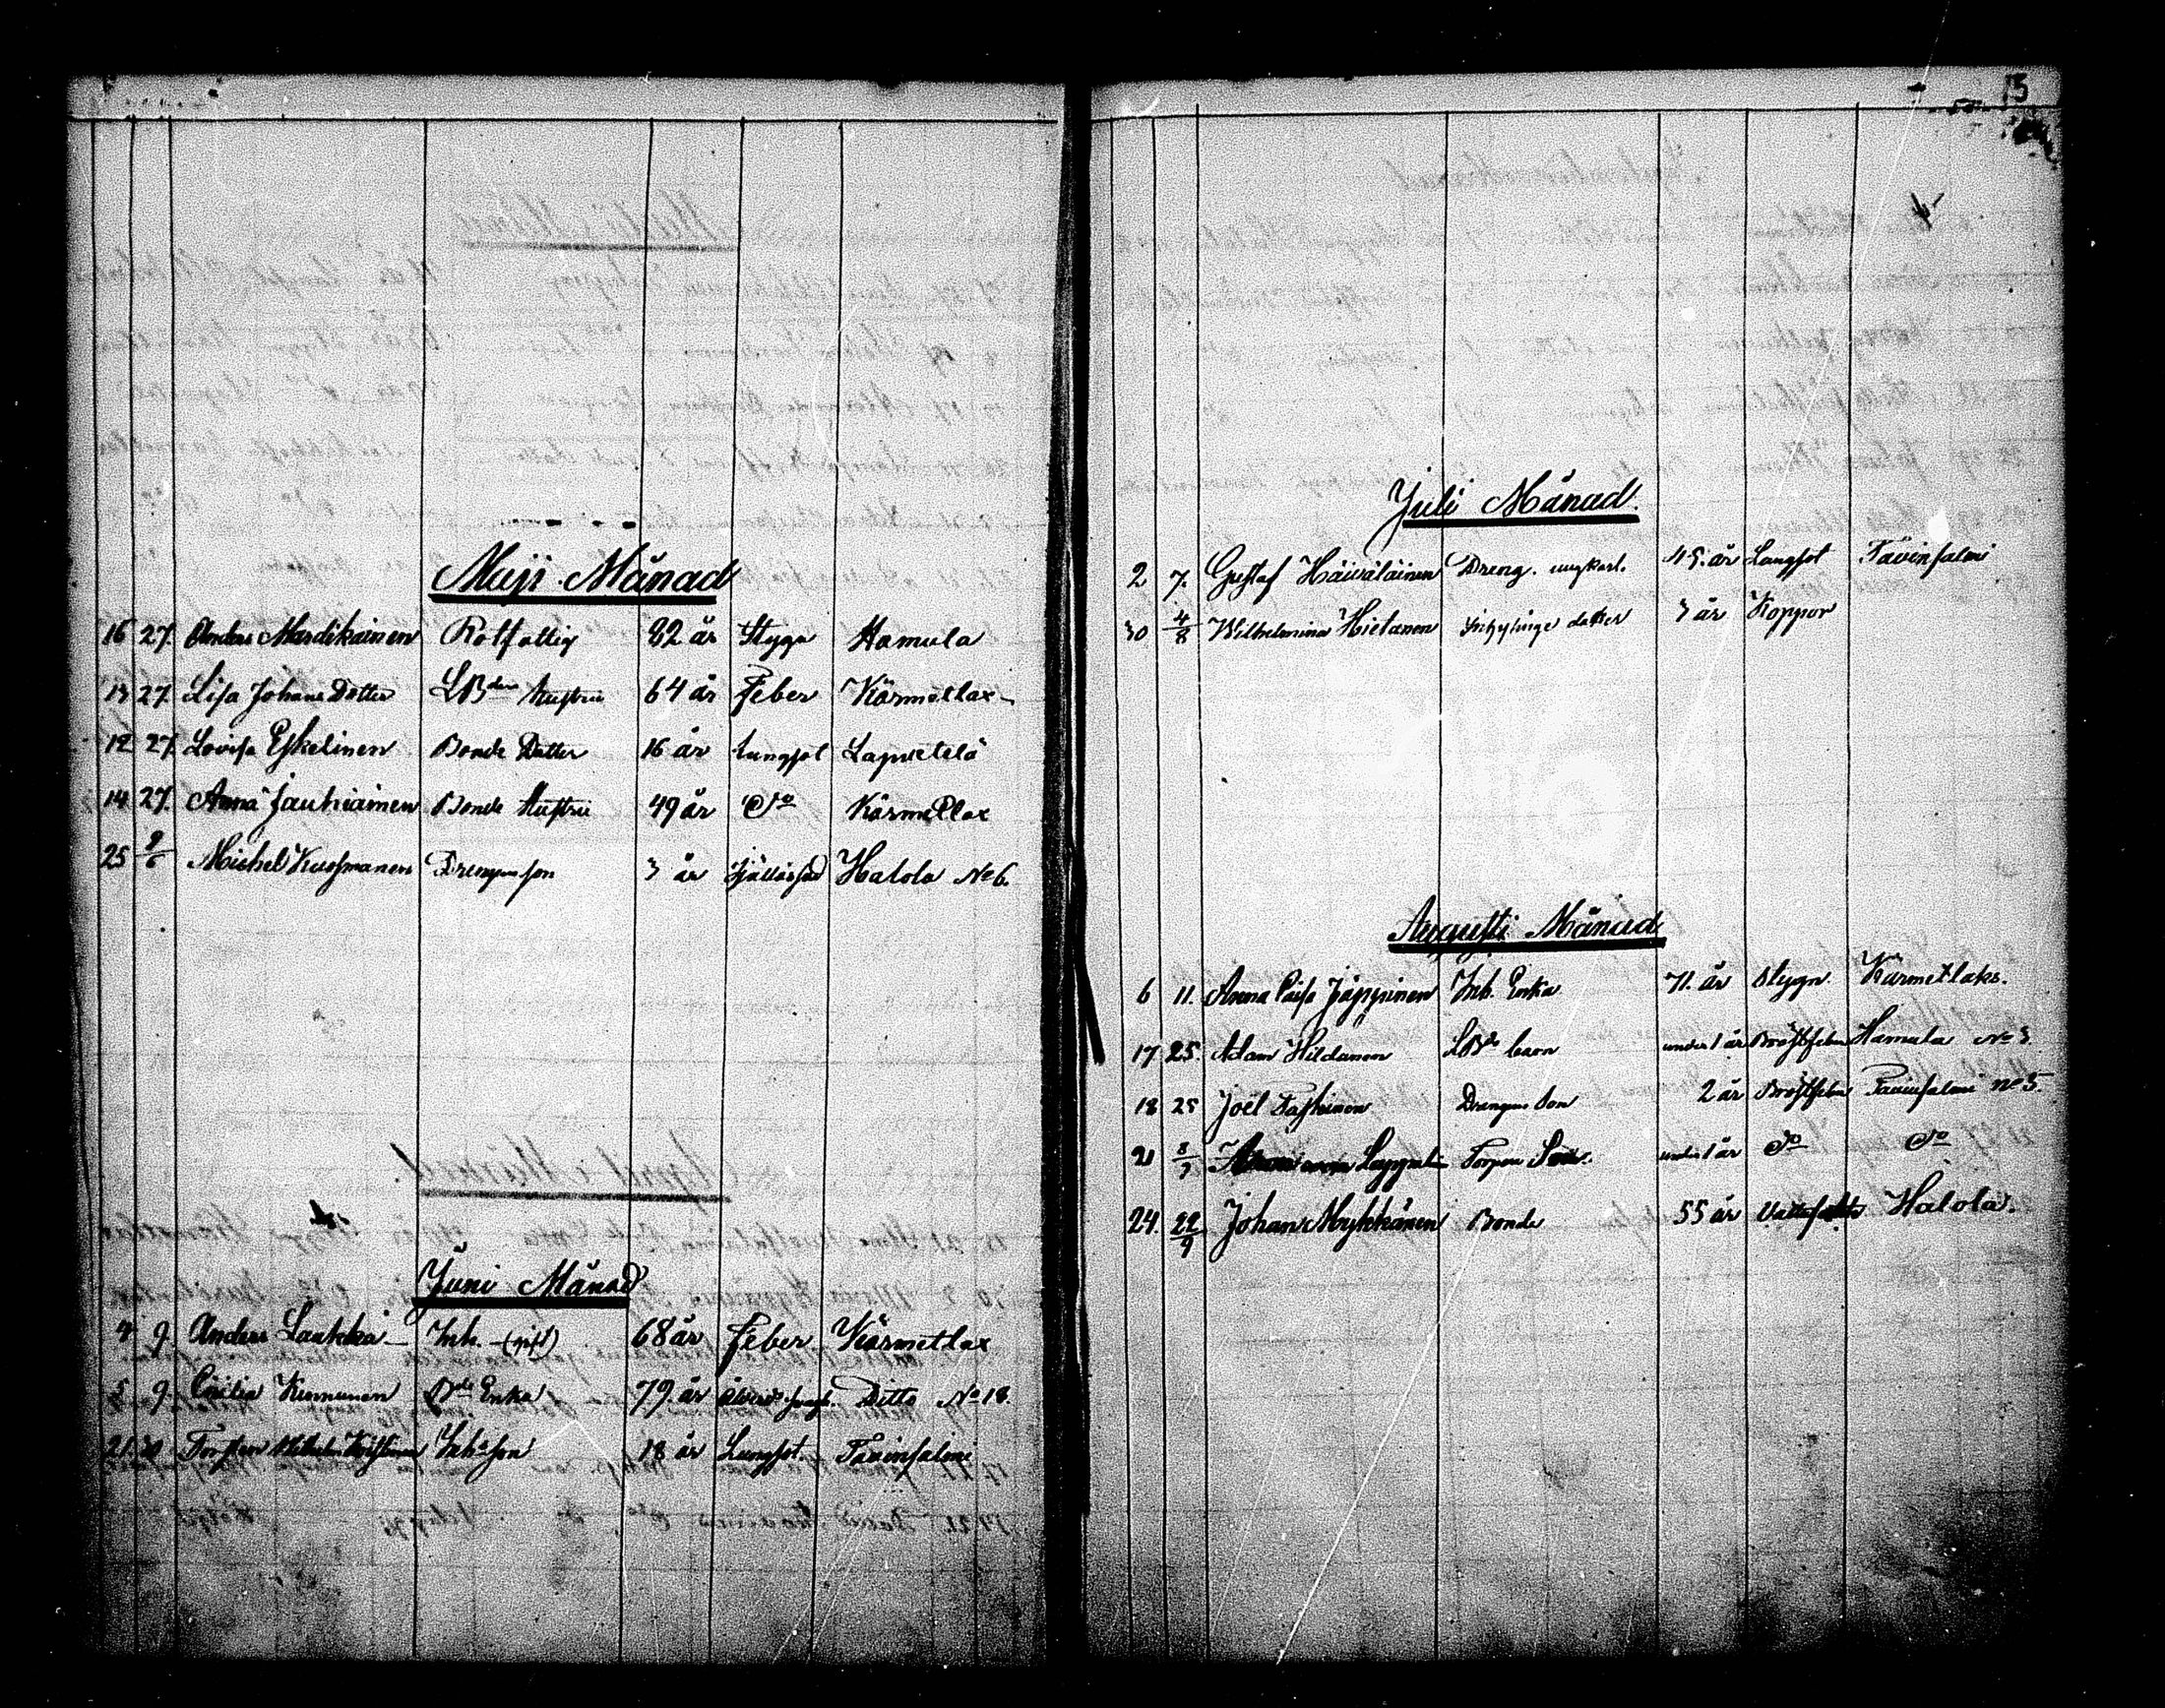 Maji Månad
16 27. Anders Mardikainen Rotfattig 82 år Stygn Hamula
13 27. Lisa Johans Dotter LBdens Hustru 64 år Feber Kärmetlax
12 27. Lovisa Eskelinen Bonde Dotter 16 år Lungsot Lapvetelä
14 27. Anna Jauhiainen Bonde Hustru 49 år Do Kärmetlax
25 2/6 Michel Kuosmanen Drengens son 3 år Halola No 6.
Juni Månad
4 9. Anders Laukka Inh. (gift) 68 år Feber Kärmetlax
5 9. Cecilia Kinnunen Bde Enka 79. år Ditto No 18.
21 30 Torsten Wilhelm Inh. son 18 år Lungsot. Tavinsalmi
15
Juli Månad.
2 7. Gustaf Häiväläinen Dreng. ungkarl. 45. år Lungsot Tavinsalmi
30 4/8 Wilhelmina Hietanen Inhysinge dotter 3 år Koppor
Augusti Månad
6 11. Anna Caisa Jäppinen Inh. Enka 71. år Stygn. Kärmetlaks.
17 25. Adam LBde barn under 1 år Bröstfeber Hamula No 3.
18 25 Joël Taskinen Drengens Son 2 år Bröstfeber Tavinsalmi No 5.
21 8/7 Torpare Son. under 1 år Do Do
24. 22/9 Johan Mykkänen Bonde 55 år Halola.